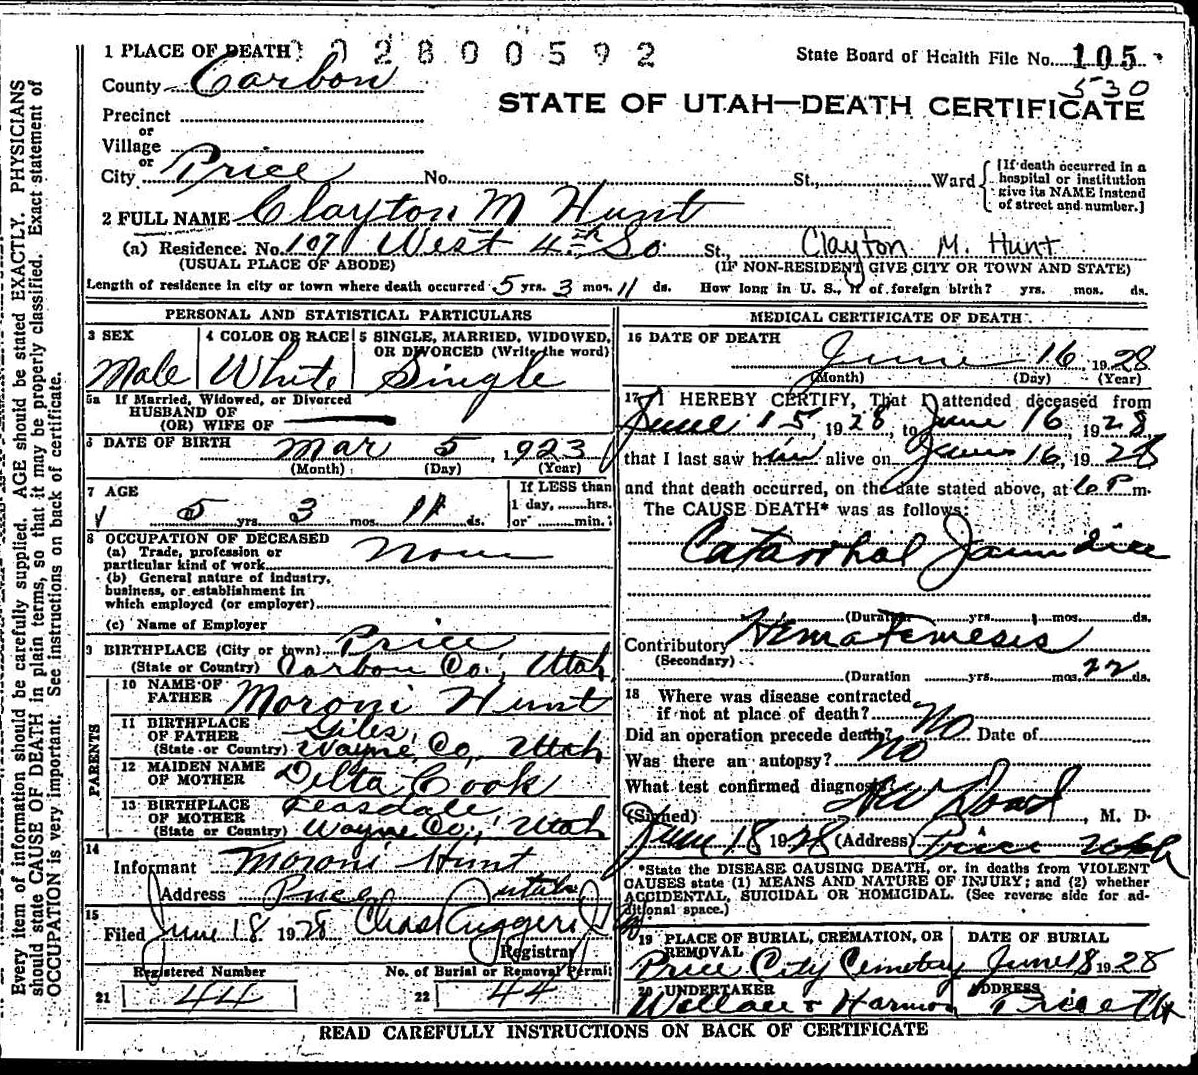 1 PLACE OF DEATH 0 0 2 8 0 0 5 9 2
State Board of Health File No. 105
530
County Carbon
STATE OF UTAH—DEATH CERTIFICATE
Precinct
or
Village
or
City Price No. St., Ward
[If death occurred in a hospital or institution give its NAME instead of street and number.]
2 FULL NAME Clayton M Hunt
(a) Residence. No. 107 West 4th So St., Clayton M. Hunt
(USUAL PLACE OF ABODE) (IF NON-RESIDENT GIVE CITY OR TOWN AND STATE)
Length of residence in city or town where death occurred 5 yrs. 3 mos. 11 ds. How long in U. S., if of foreign birth? yrs. mos. ds.
PERSONAL AND STATISTICAL PARTICULARS
3 SEX Male
4 COLOR OR RACE White
5 SINGLE, MARRIED, WIDOWED, OR DIVORCED (Write the word) Single
5a If Married, Widowed, or Divorced
HUSBAND OF
(OR) WIFE OF
6 DATE OF BIRTH Mar 5, 1923
(Month) (Day) (Year)
7 AGE 5 yrs. 3 mos. 11 ds.
If LESS than 1 day, hrs. or min.
8 OCCUPATION OF DECEASED
(a) Trade, profession or particular kind of work None
(b) General nature of industry, business, or establishment in which employed (or employer)
(c) Name of Employer
9 BIRTHPLACE (City or town) Price
(State or Country) Carbon Co., Utah
PARENTS
10 NAME OF FATHER Moroni Hunt
11 BIRTHPLACE OF FATHER Giles,
(State or Country) Wayne Co, Utah
12 MAIDEN NAME OF MOTHER Delta Cook
13 BIRTHPLACE OF MOTHER Teasdale,
(State or Country) Wayne Co., Utah
14
Informant Moroni Hunt
Address Price Utah
15
Filed June 18 1928 Chas Ruggeri Jr
Registrar
Registered Number No. of Burial or Removal Permit
21 44 22 44
MEDICAL CERTIFICATE OF DEATH
16 DATE OF DEATH
June 16, 1928
(Month) (Day) (Year)
17 I HEREBY CERTIFY, That I attended deceased from
June 15, 1928, to June 16, 1928
that I last saw him alive on June 16, 1928
and that death occurred, on the date stated above, at 6 P m.
The CAUSE DEATH* was as follows:
Catarrhal Jaundice
(Duration yrs. mos. ds.
Contributory Hematemesis
(Secondary)
(Duration yrs. mos. 22 ds.
18 Where was disease contracted
if not at place of death?
Did an operation precede death? No Date of
Was there an autopsy? No
What test confirmed diagnosis?
(Signed) , M. D.
June 18 1928 (Address) Price Utah
*State the DISEASE CAUSING DEATH, or, in deaths from VIOLENT
CAUSES state (1) MEANS AND NATURE OF INJURY; and (2) whether
ACCIDENTAL, SUICIDAL OR HOMICIDAL. (See reverse side for ad-
ditional space.)
19 PLACE OF BURIAL, CREMATION, OR REMOVAL DATE OF BURIAL
Price City Cemetery June 18 1928
20 UNDERTAKER ADDRESS
Wallace & Harmon Price Ut
READ CAREFULLY INSTRUCTIONS ON BACK OF CERTIFICATE
Every item of information should be carefully supplied. AGE should be stated EXACTLY. PHYSICIANS
should state CAUSE OF DEATH in plain terms, so that it may be properly classified. Exact statement of
OCCUPATION is very important. See instructions on back of certificate.